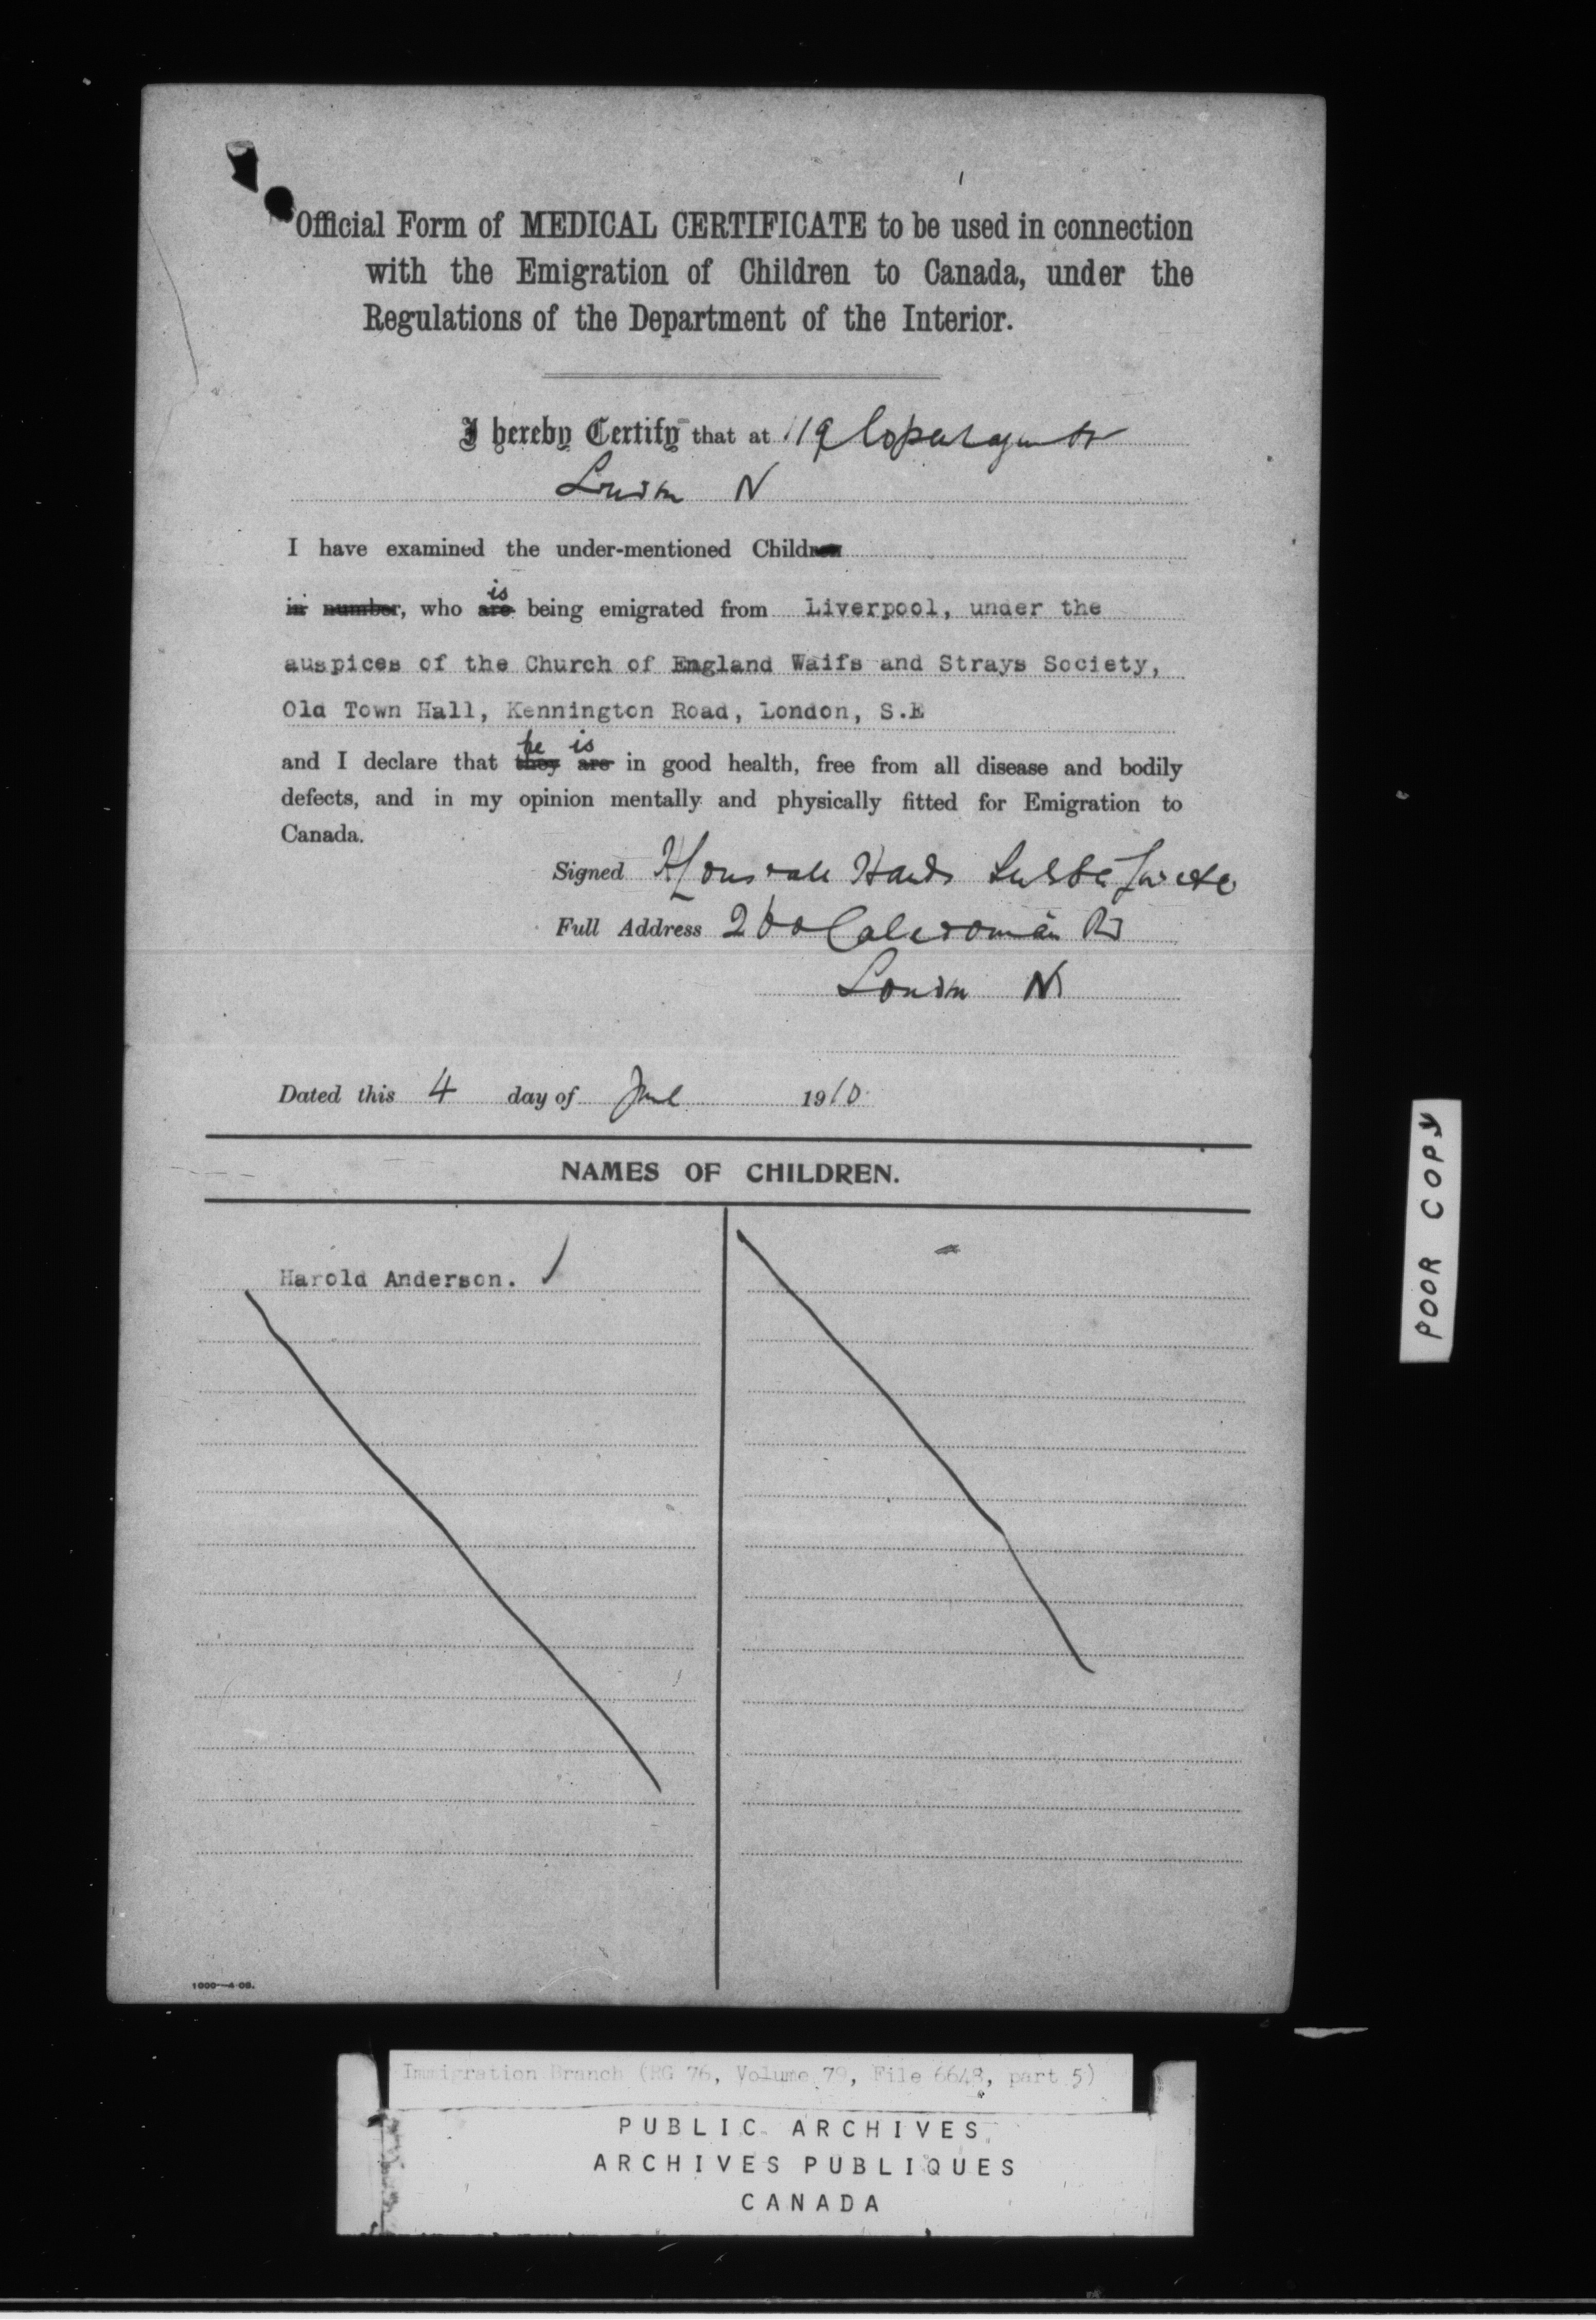 Official Form of MEDICAL CERTIFICATE to be used in connection
with the Emigration of Children to Canada, under the
Regulations of the Department of the Interior.
I hereby Certify that at 119
London N
I have examined the under-mentioned Children
in number, who are is being emigrated from Liverpool, under the
auspices of the Church of England Waifs and Strays Society,
Old Town Hall, Kennington Road, London, S.E
he is
and I declare that they are in good health, free from all disease and bodily
defects, and in my opinion mentally and physically fitted for Emigration to
Canada.
Signed
Full Address 260 Caledonian Rd
London N
Dated this 4 day of June 1910
NAMES OF CHILDREN.
Harold Anderson.
1000—4 09.
POOR COPY
Immigration Branch (RG 76, Volume 79, File 6648, part 5)
PUBLIC ARCHIVES
ARCHIVES PUBLIQUES
CANADA